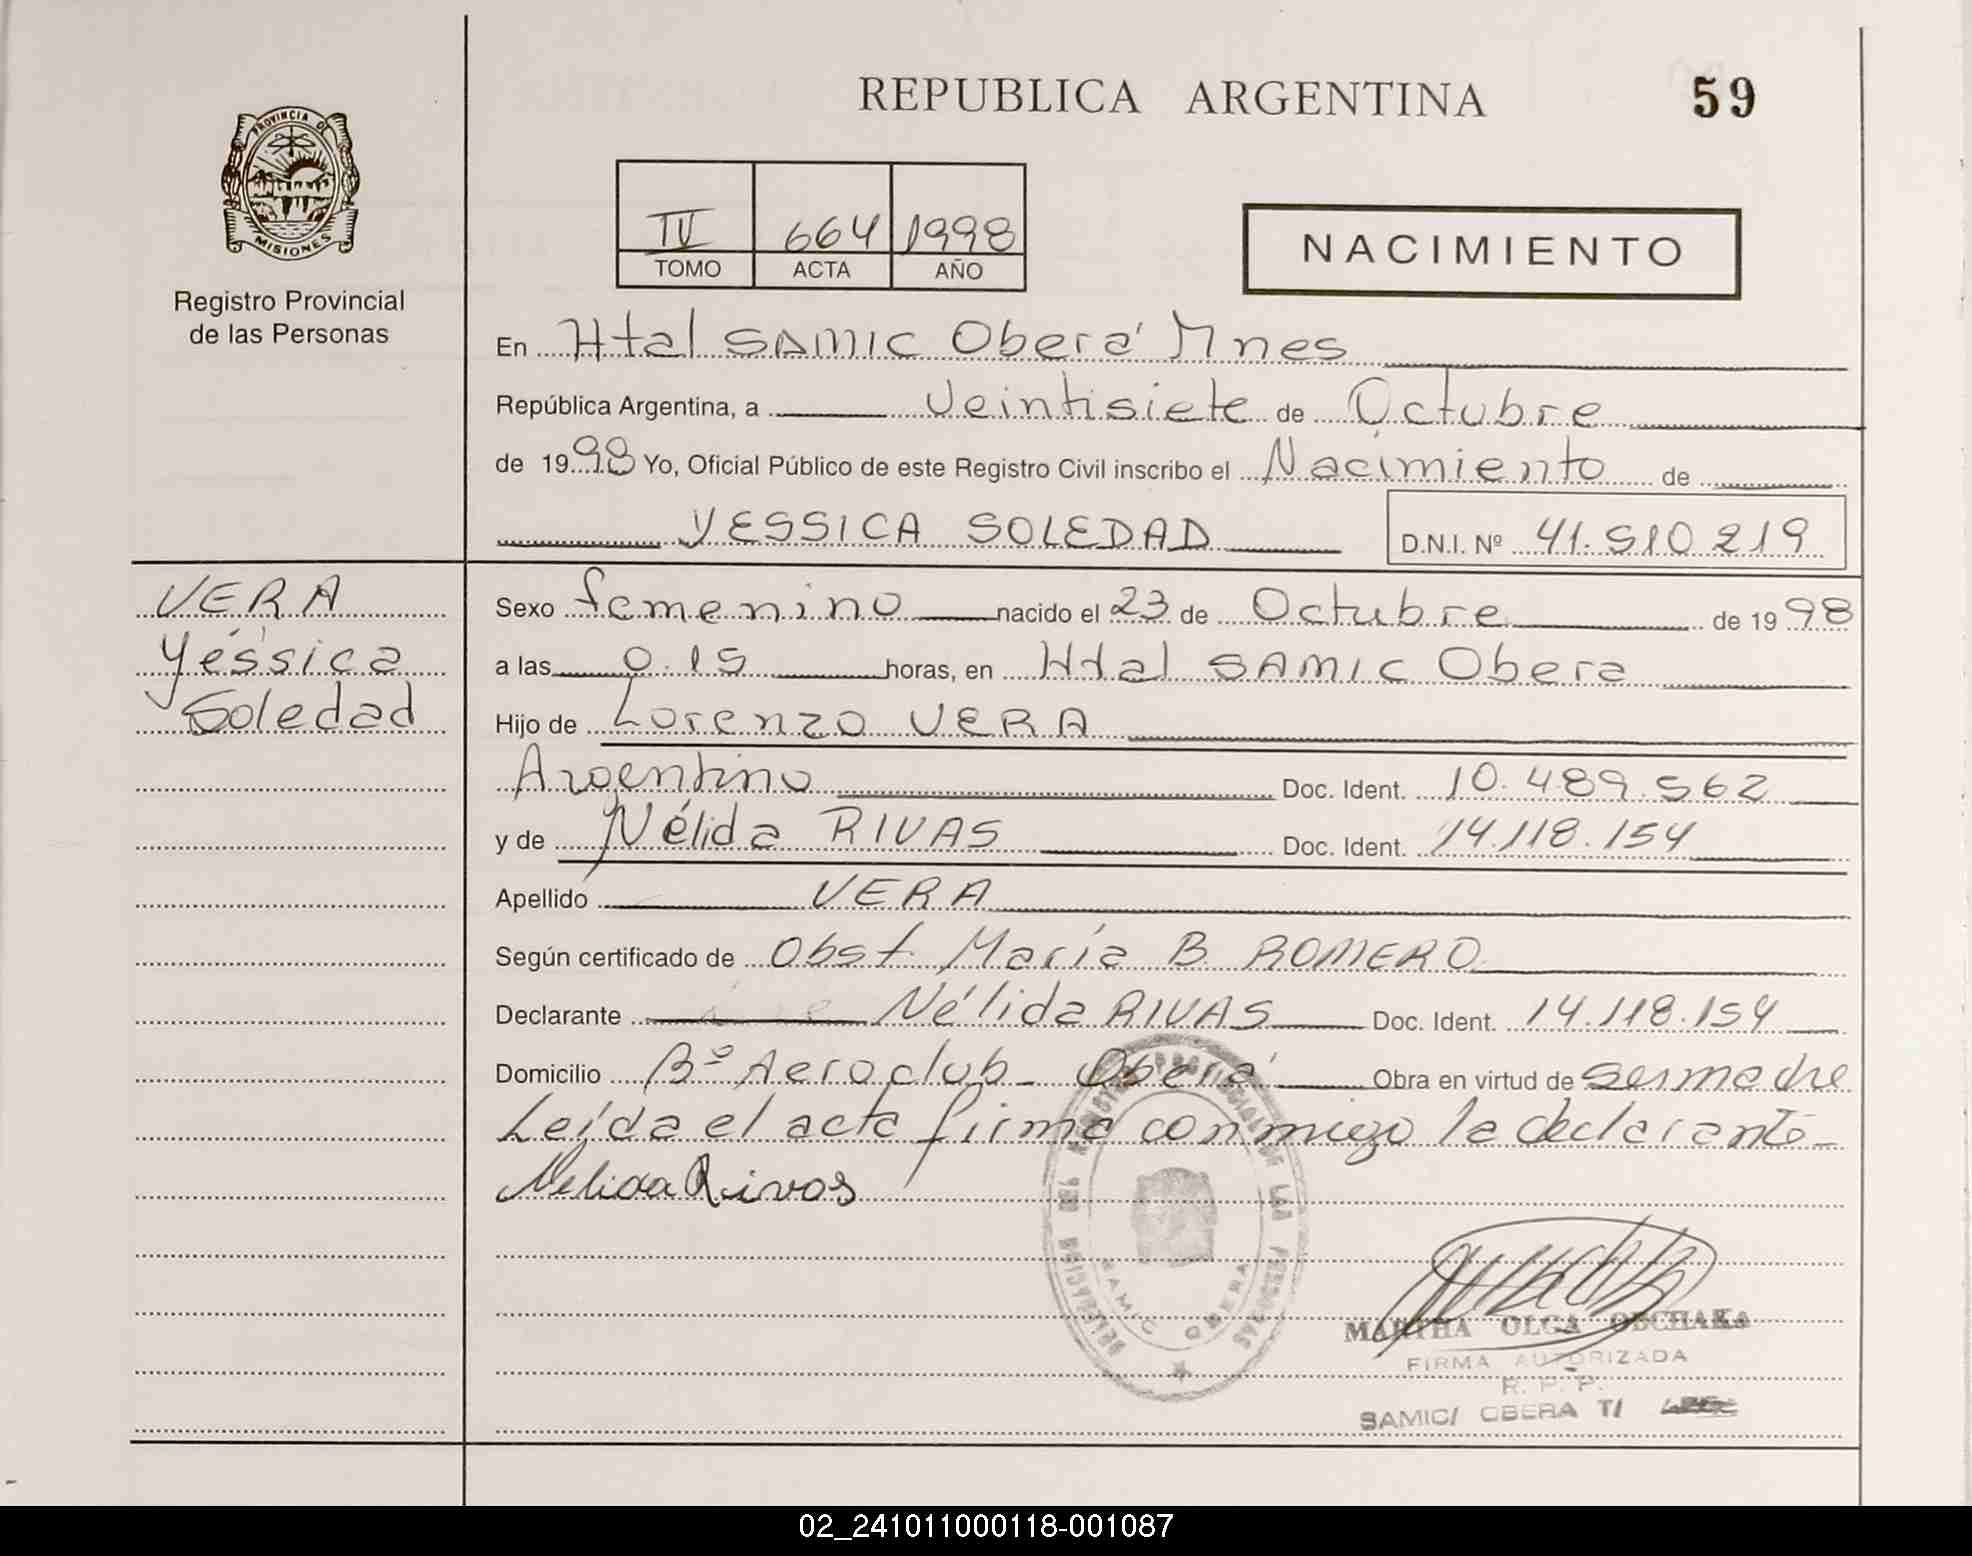 REPUBLICA ARGENTINA 59
PROVINCIA DE
MISIONES
Registro Provincial
de las Personas
IV 664 1998
TOMO ACTA AÑO
NACIMIENTO
En Htal SAMIC Oberá Mnes
República Argentina, a Veintisiete de Octubre
de 1998 Yo, Oficial Público de este Registro Civil inscribo el Nacimiento de
YESSICA SOLEDAD D.N.I. Nº 41.510.219
VERA
Yéssica
Soledad
Sexo femenino nacido el 23 de Octubre de 1998
a las 0.15 horas, en Htal SAMIC Obera
Hijo de Lorenzo VERA
Argentino Doc. Ident. 10.489.562
y de Nélida RIVAS Doc. Ident. 14.118.154
Apellido VERA
Según certificado de Obst. María B. ROMERO
Declarante Nélida RIVAS Doc. Ident. 14.118.154
Domicilio Bº Aeroclub - Oberá Obra en virtud de ser madre
Leída el acta firma conmigo la declarante-
Nelida Rivas
REGISTRO PROVINCIAL DE LAS PERSONAS
SAMIC OBERA
MARTHA OLGA OBCHAKA
FIRMA AUTORIZADA
R. P. P.
SAMIC/ OBERA T/
02_241011000118-001087